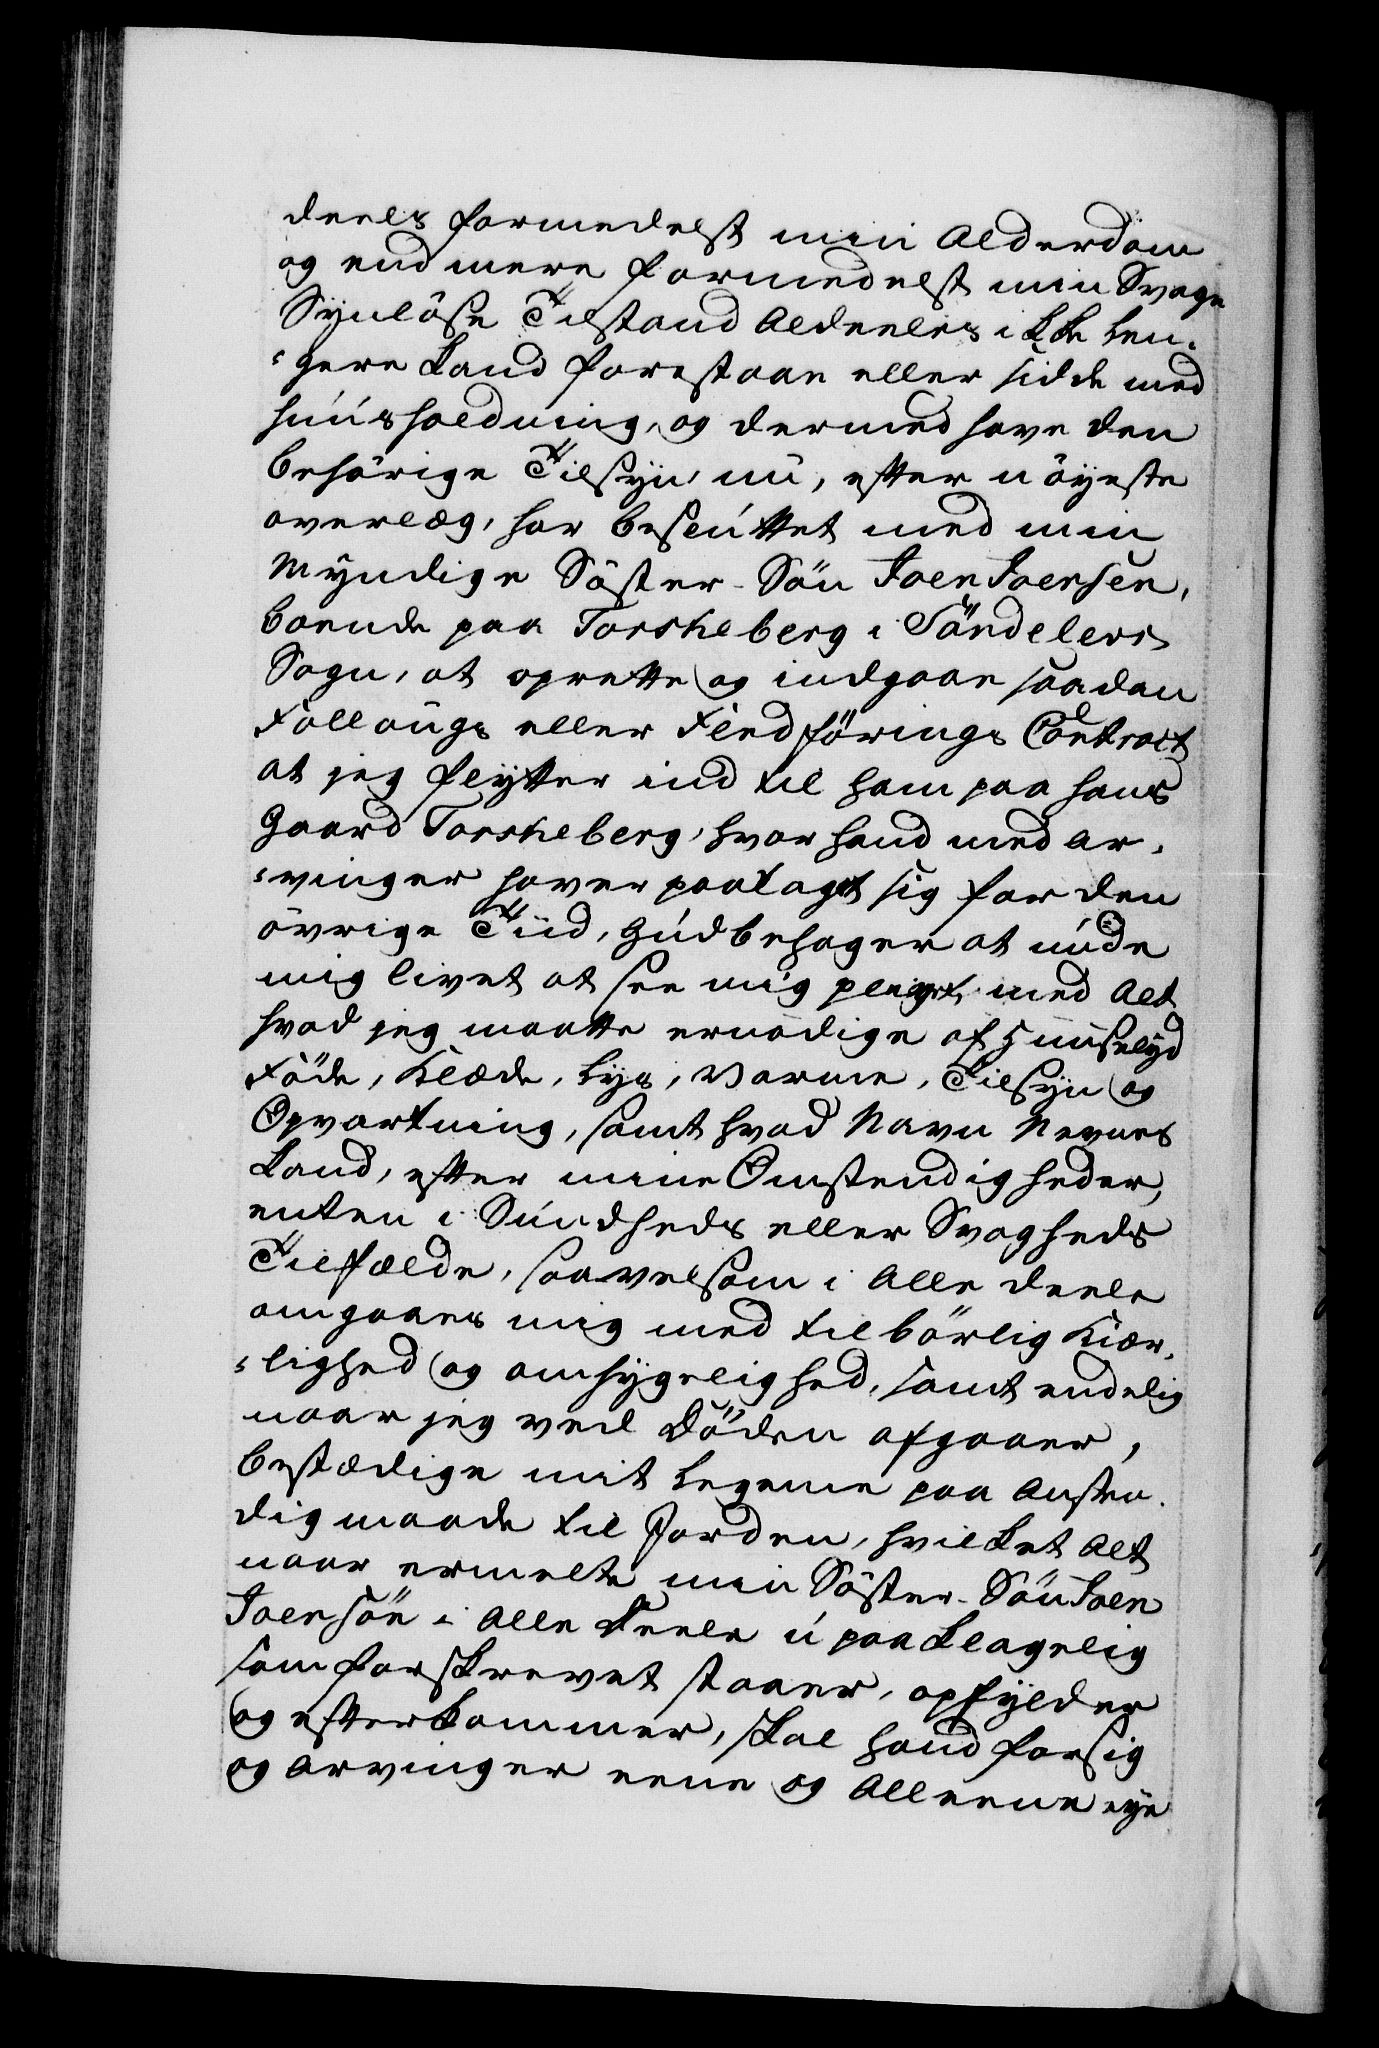 deels formedelst min Alderdom
og end mere formedelst min Svage
Synlöse Tilstand Aldeeles ikke len-
-gere kand forestaae eller sidde med
huusholdning, og dermed have den
behörige Tilsyn, nu, efter nöyeste
overlæg, har besluttet med min
Myndige Söster-Sön Joen Joensen,
boende paa Torskeberg i Söndelers
Sogn, at oprette og indgaae saadan
Follougs eller Flendförings Contract
at jeg flytter ind til ham paa hans
Gaard Torskeberg, hvor hand med ar-
-vinger haver paataget sig for den
övrige Tiid, Gud behager at unde
mig livet at see mig pleyet med Alt
hvad jeg maatte ernödige af Huuselyd
Föde, Klæde, Lys, Varme, Tilsyn og
Opvartning, samt hvad Navn Nevnes
kand, efter mine Omstendigheder,
enten i Sundheds eller Svagheds
Tilfælde, saavelsom i Alle deele
omgaaes mig med tilbörlig Kiær-
-lighed og omhyggelighed, samt endelig
naar jeg ved Döden afgaaer,
bestædige mit Legeme paa Ansten-
dig maade til Jorden, hvilket Alt
naar ermelte min Söster-Sön Joen
Joensön i Alle Deele upaaklagelig
som forskrevet staaer, opfylder
og efterkommer, skal hand for sig
og Arvinger eene og Alleene eye